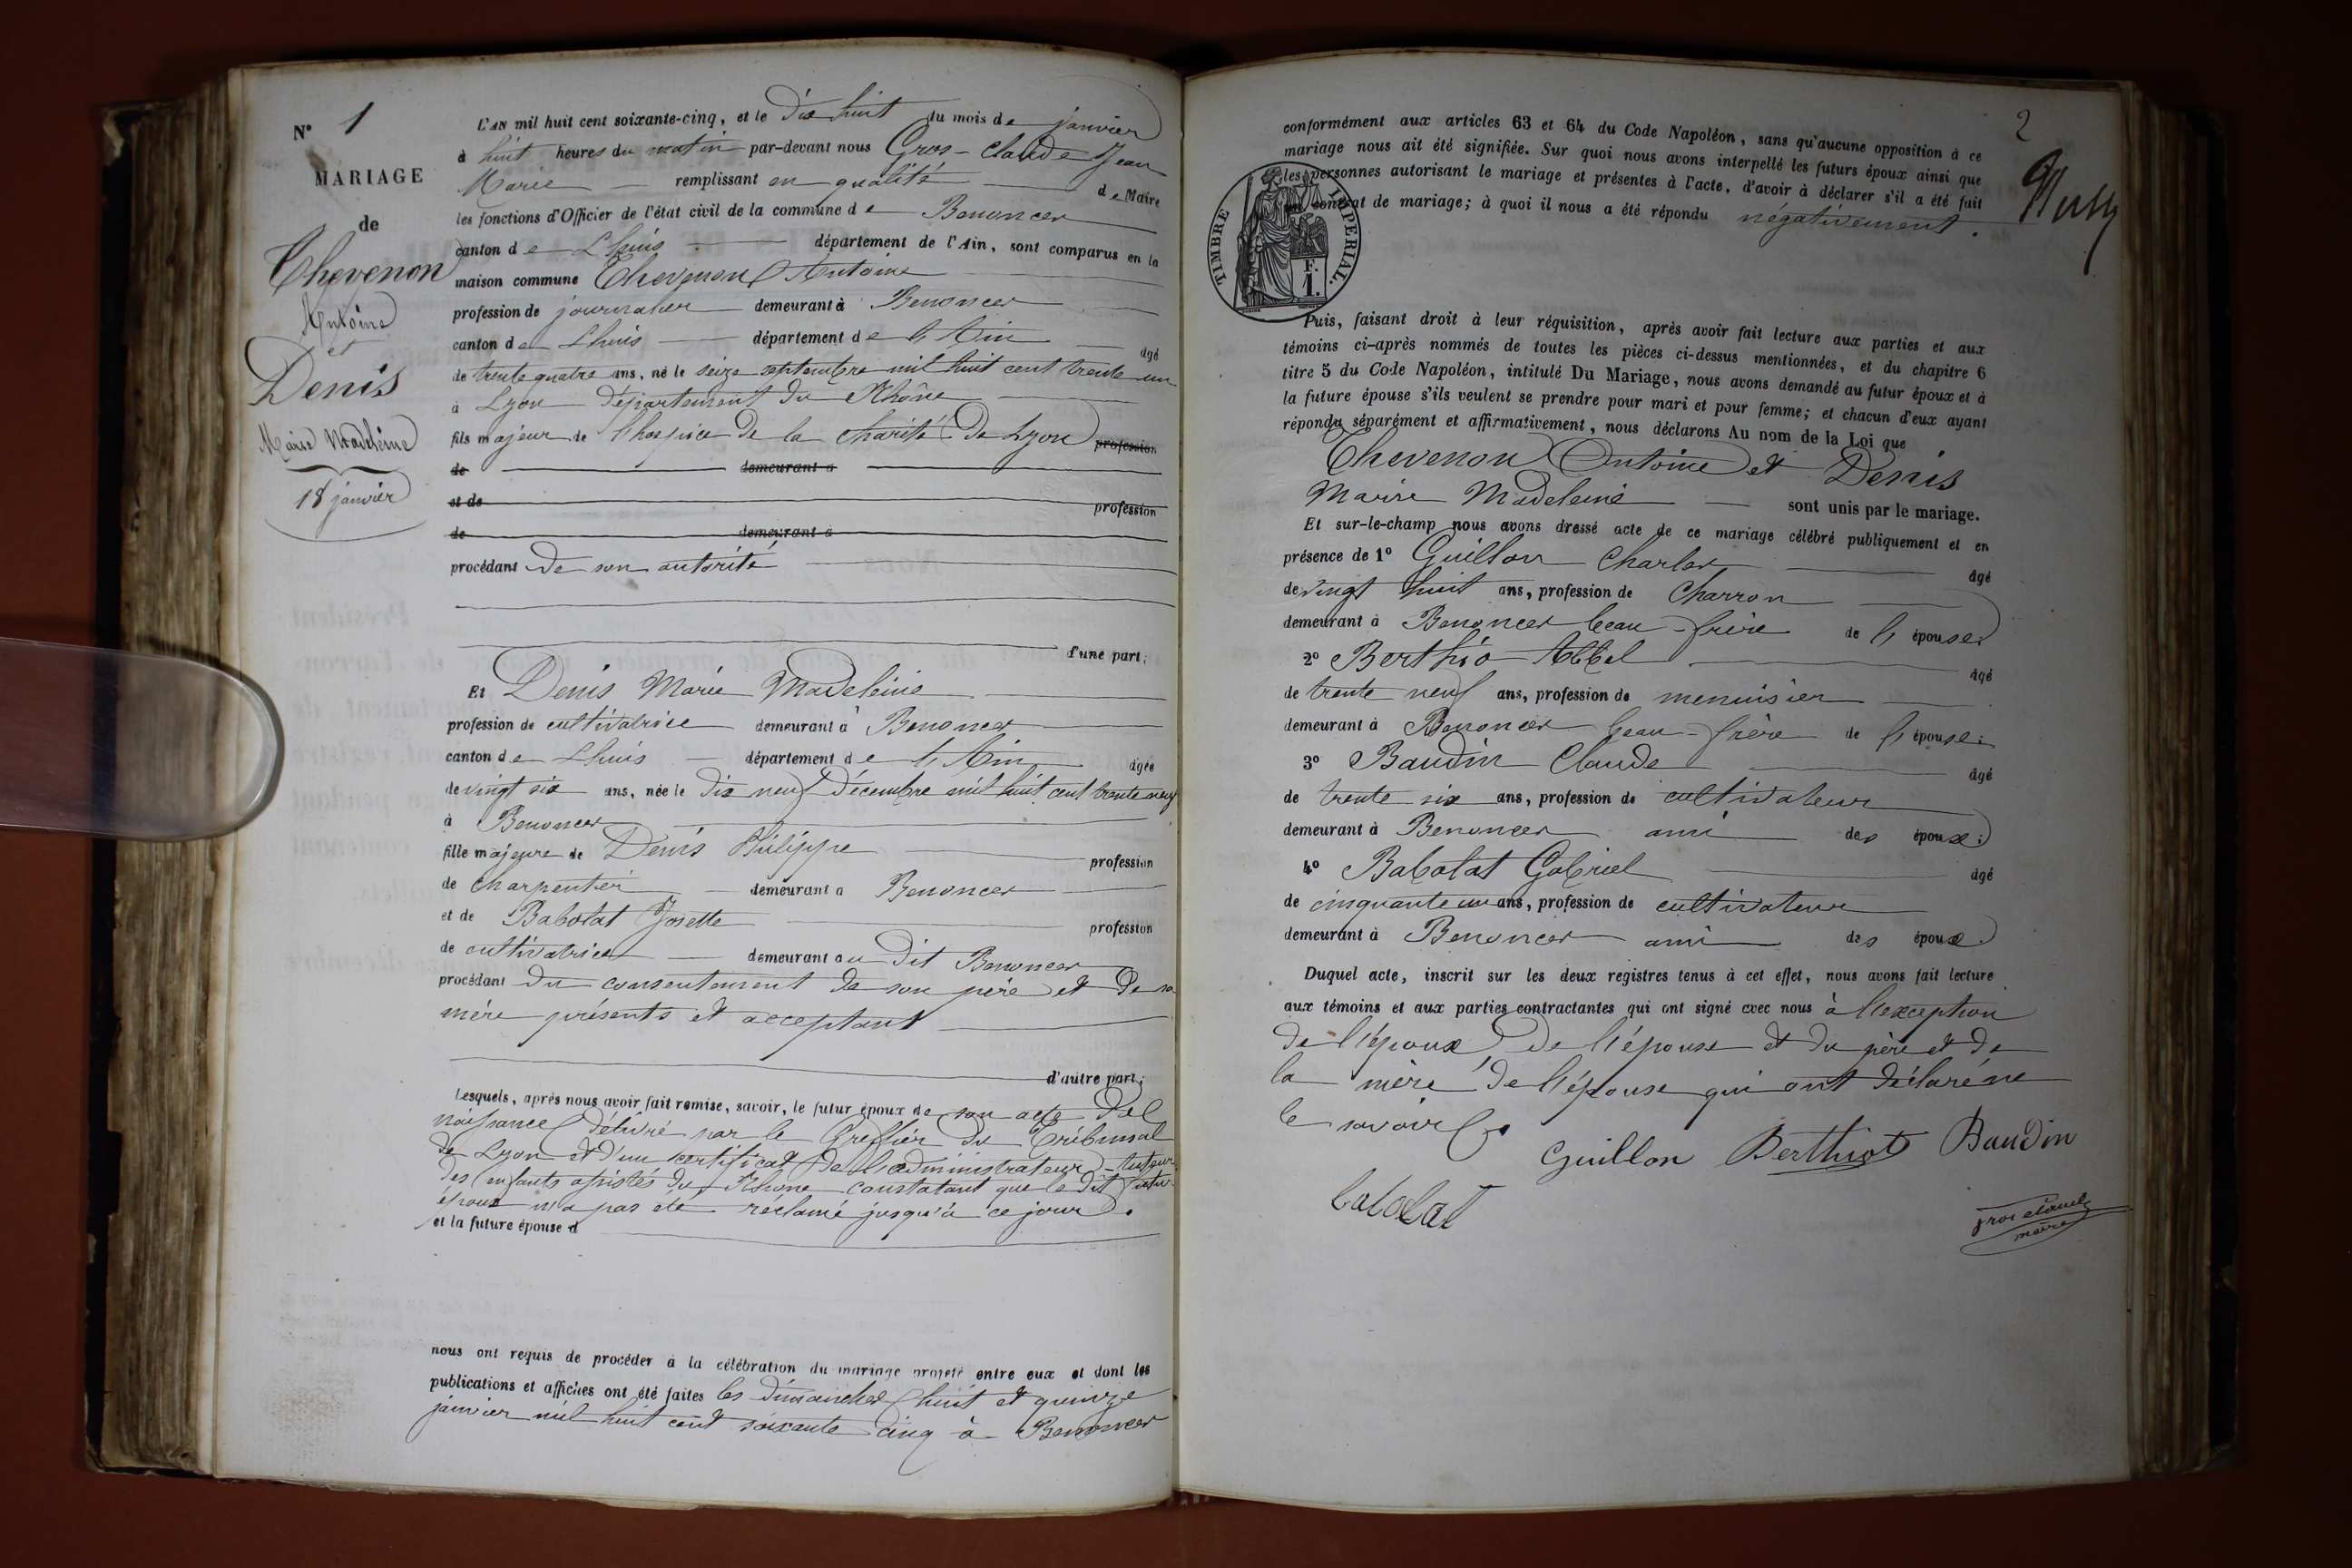 N° 1
MARIAGE
de
Chevenon
Antoine
et
Denis
Marie Madeleine
18 janvier
L'AN mil huit cent soixante-cinq, et le Dix huit du mois de janvier
à huit heures du matin par-devant nous Gros-Claude Jean
Marie remplissant en qualité de Maire
les fonctions d'Officier de l'état civil de la commune de Benonces
canton de Lhuis département de l'Ain, sont comparus en la
maison commune Chevenon Antoine
profession de journalier demeurant à Benonces
canton de Lhuis département de l'Ain âgé
de trente quatre ans, né le seize septembre mil huit cent trente un
à Lyon département du Rhône
fils majeur de l'hospice de la charité de Lyon profession
de demeurant à
et de profession
de demeurant à
procédant de son autorité
d'une part;
Et Denis Marie Madeleine
profession de cultivatrice demeurant à Benonces
canton de Lhuis département de l'Ain âgée
de vingt six ans, née le dix neuf Décembre mil huit cent trente neuf
à Benonces
fille majeure de Denis Philippe profession
de charpentier demeurant à Benonces
et de Babolat Josette profession
de cultivatrice demeurant au dit Benonces
procédant du consentement de son père et de sa
mère présents et acceptant
d'autre part;
Lesquels, après nous avoir fait remise, savoir, le futur époux de son acte de
naissance délivré par le Greffier du Tribunal
de Lyon et d'un certificat de l'administrateur-tuteur
des enfants assistés du Rhône constatant que le dit futur
époux n'a pas été réclamé jusqu'à ce jour.
et la future épouse d
nous ont requis de procéder à la célébration du mariage projeté entre eux et dont les
publications et affiches ont été faites les dimanches huit et quinze
janvier mil huit cent soixante cinq à Benonces
2
conformément aux articles 63 et 64 du Code Napoléon, sans qu'aucune opposition à ce
mariage nous ait été signifiée. Sur quoi nous avons interpellé les futurs époux ainsi que
les personnes autorisant le mariage et présentes à l'acte, d'avoir à déclarer s'il a été fait
un contrat de mariage; à quoi il nous a été répondu négativement.
TIMBRE IMPERIAL.
F.
1.
Puis, faisant droit à leur réquisition, après avoir fait lecture aux parties et aux
témoins ci-après nommés de toutes les pièces ci-dessus mentionnées, et du chapitre 6
titre 5 du Code Napoléon, intitulé Du Mariage, nous avons demandé au futur époux et à
la future épouse s'ils veulent se prendre pour mari et pour femme; et chacun d'eux ayant
répondu séparément et affirmativement, nous déclarons Au nom de la Loi que
Chevenon Antoine et Denis
Marie Madeleine sont unis par le mariage.
Et sur-le-champ nous avons dressé acte de ce mariage célébré publiquement et en
présence de 1° Guillon Charles âgé
de vingt huit ans, profession de Charron
demeurant à Benonces beau-frère de l'épouse
2° Berthio Abbel âgé
de trente neuf ans, profession de menuisier
demeurant à Benonces beau-frère de l'épouse;
3° Baudin Claude âgé
de trente six ans, profession de cultivateur
demeurant à Benonces ami des époux;
4° Babolat Gabriel âgé
de cinquante un ans, profession de cultivateur
demeurant à Benonces ami des époux
Duquel acte, inscrit sur les deux registres tenus à cet effet, nous avons fait lecture
aux témoins et aux parties contractantes qui ont signé avec nous à l'exception
de l'époux de l'épouse et du père et de
la mère de l'épouse qui ont déclaré ne
le savoir.
Guillon Berthiot Baudin
babolat
gros claude
maire